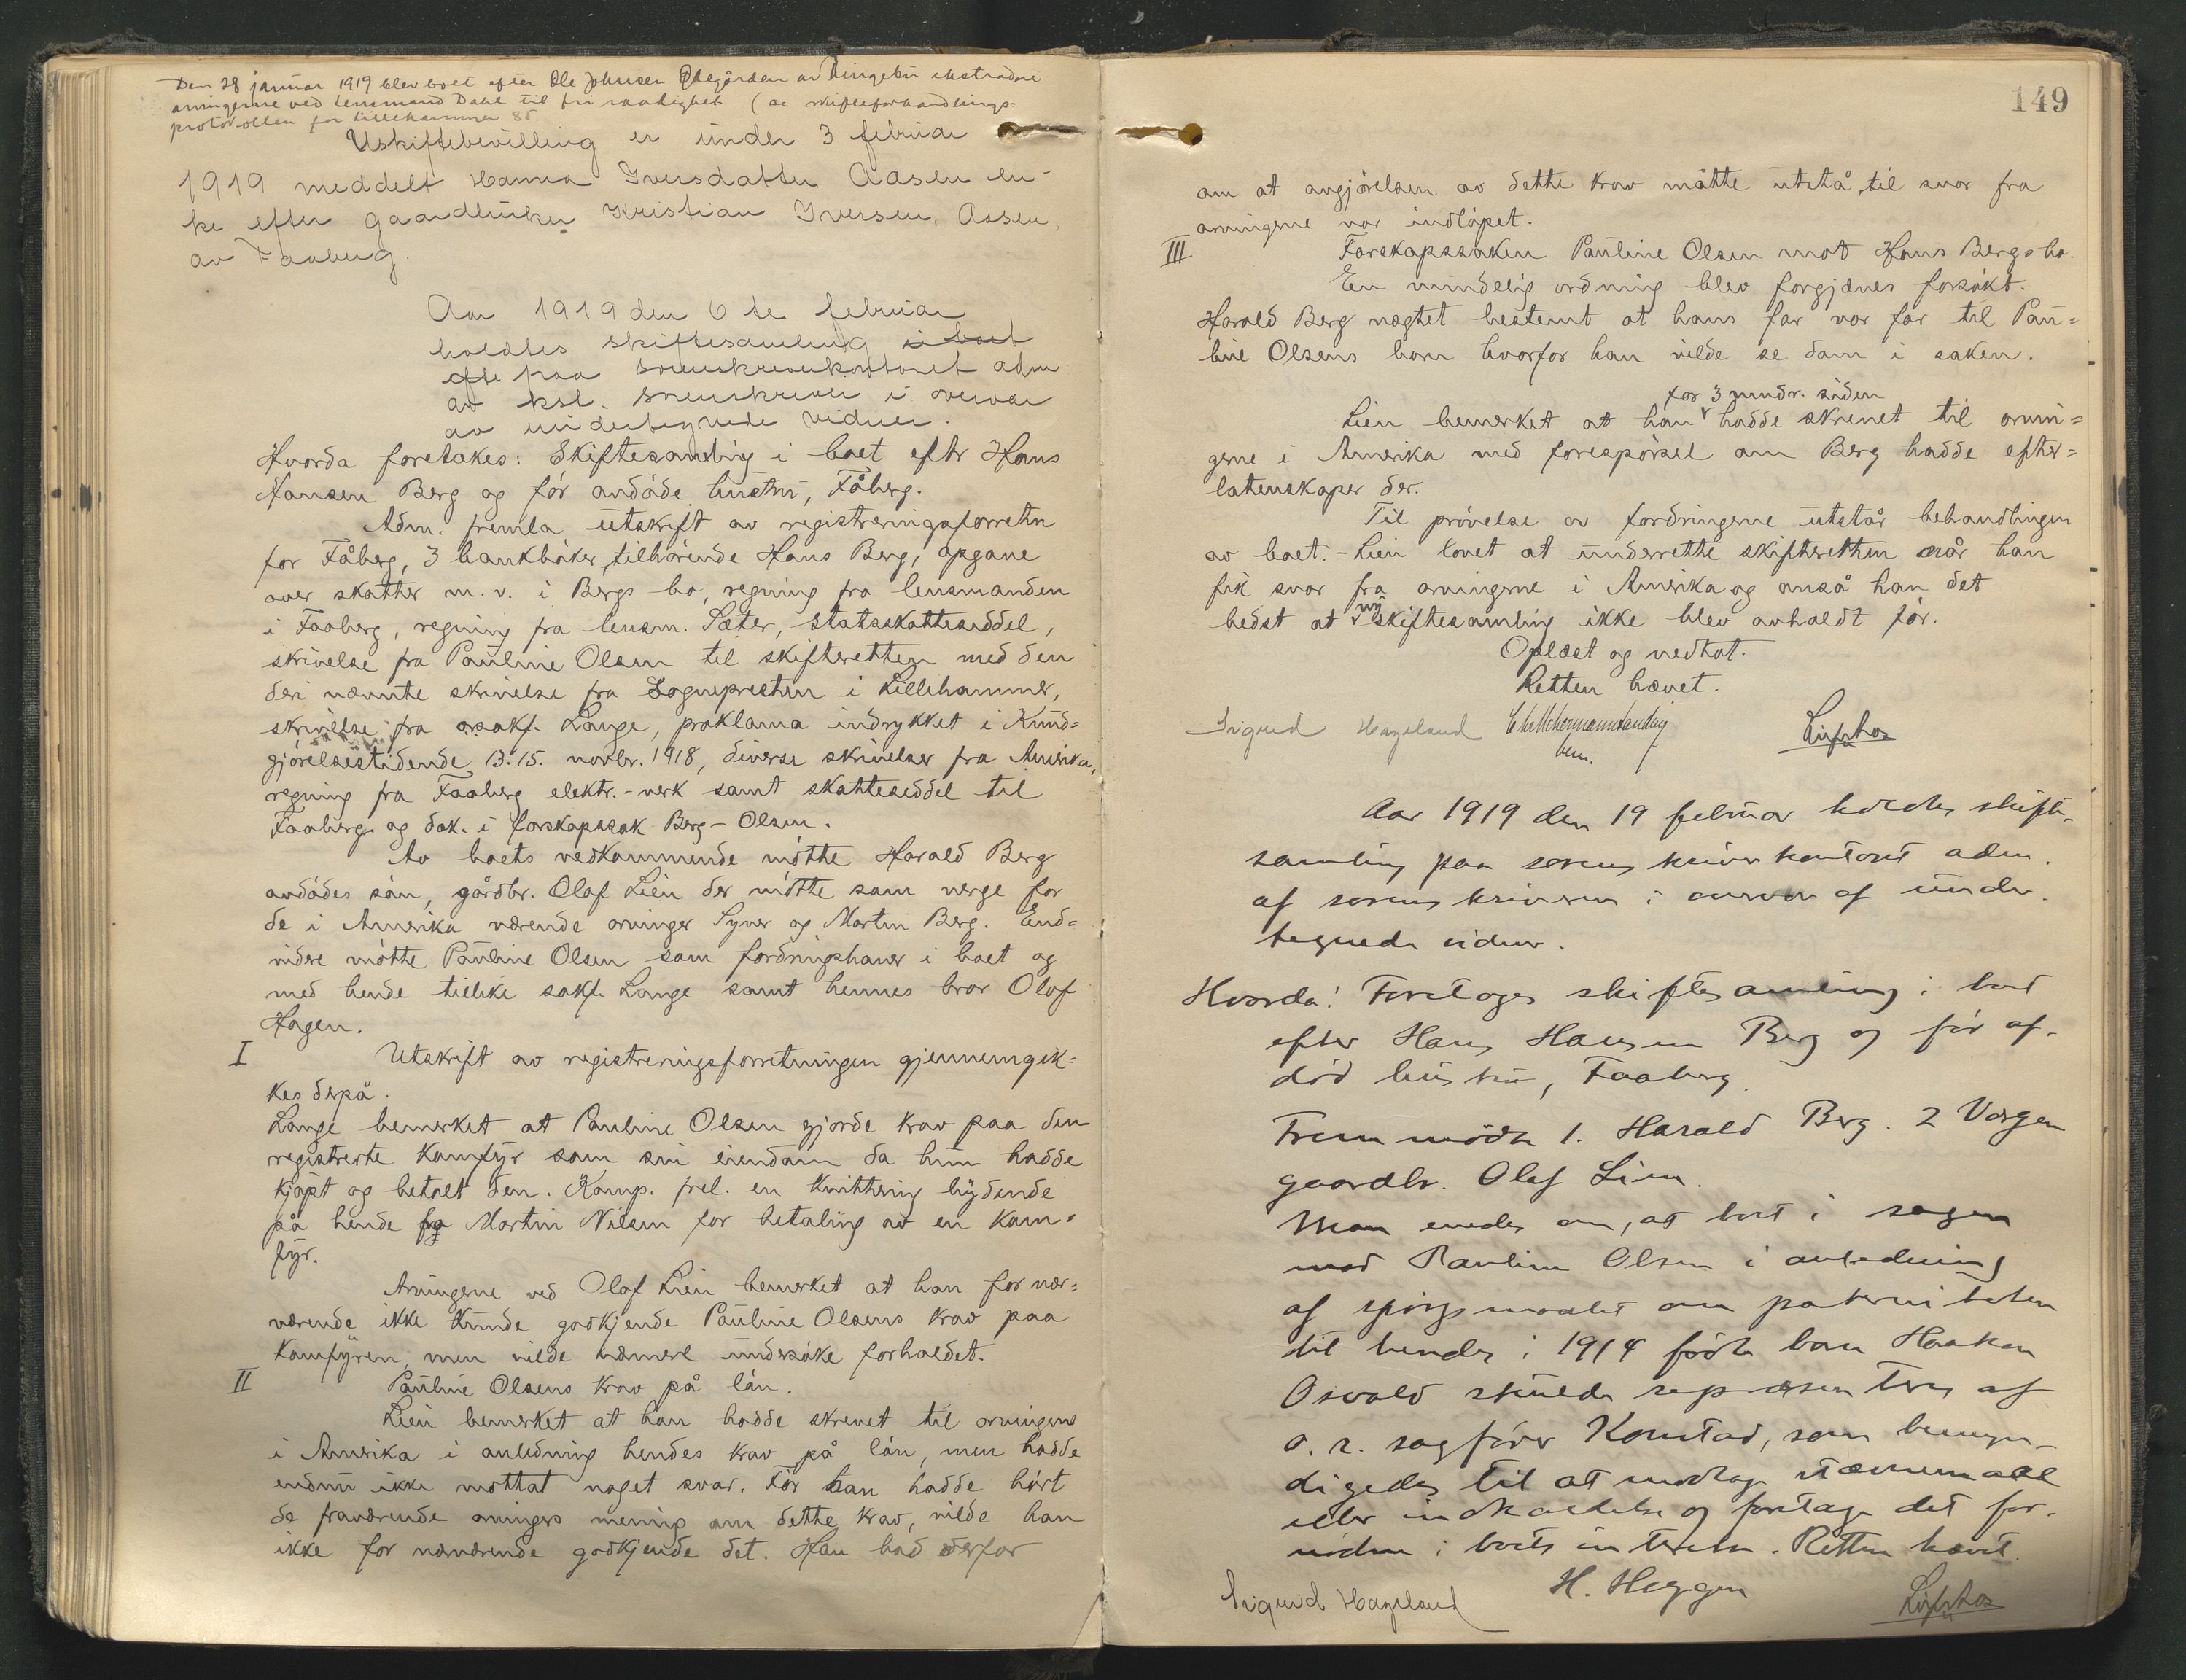 Den 28 januar 1919 blev boet efter Ole Johnsen av Ringebu ekstradert
arvingerne ved lensmand Dahl til fri raadighet (se skifteforhandlings-
protokollen for Lillehammer 85.
Uskiftebevilling er under 3 februar
1919 meddelt Hanna Iversdatter Aasen en-
ke efter gaardbruker Kristian Iversen Aasen,
av Faaberg.
Aar 1919 den 6te februar
holdtes skiftesamling i boet
efte paa sorenskriverkontoret adm.
av kst. sorenskriver i overvær
av undertegnede vidner.
Hvorda foretakes: Skiftesamling i boet eftr Hans
Hansen Berg og før avdøde hustru, Fåberg.
Adm. fremla utskrift av registreringsforretn
for Fåberg, 3 bankbøker, tilhørende Hans Berg, opgave
over skatter m.v. i Bergs bo, regning fra lensmanden
i Faaberg, regning fra lensm. Sæter, statsskatteseddel,
skrivelse fra Pauline Olsen til skifteretten med den
deri nævnte skrivelse fra Sognepresten i Lillehammer,
skrivelse fra orsakf. Lange, proklama indrykket i Kund=
gjørelsestidende 13. 15. novbr. 1918, diverse skrivelser fra Amerika,
regning fra Faaberg elektr.-verk samt skatteseddel til
Faaberg og dok. i farskapssak Berg - Olsen.
Av boets vedkommende møtte Harald Berg
avdødes søn, gårdbr. Olaf Lien der møtte som verge for
de i Amerika værende arvinger Syver og Martin Berg. End=
videre møtte Pauline Olsen som fordringshaver i boet og
med hende tillike sakf. Lange samt hennes bror Olof
Hagen.
I Utskrift av registreringsforretningen gjennemgik=
kes derpå.
Lange bemerket at Pauline Olsen gjorde krav paa den
registrerte Komfyr som sin eiendom da hun hadde
kjøpt og betalt den. Komp. frel. en kvittering lydende
på hende fra Martin Nilsen for betaling av en kom=
fyr.
Arvingerne ved Olaf Lien bemerket at han for nær=
værende ikke kunde godkjende Pauline Olsens krav paa
Komfyren, men vilde nærmere undersøke forholdet.
II Pauline Olsens krav på lån.
Lien bemerket at han hadde skrevet til arvingerne
i Amerika i anledning hendes krav på lån, men hadde
endnu ikke mottat noget svar. Før han hadde hørt
de fraværende arvingers mening om dette krav, vilde han
ikke for nærværende godkjende det. Han bad derfor
149
om at avgjørelsen av dette krav måtte utstå, til svar fra
arvingerne var indløpet.
III Farskapssaken Pauline Olsen mot Hans Bergs bo.
En mindelig ordning blev forgjæves forsøkt.
Harald Berg nægtet bestemt at hans far var far til Pau=
line Olsens barn hvorfor han vilde se dom i saken.
for 3 mndr. siden
Lien bemerket at han hadde skrevet til arvin=
gerne i Amerika med forespørsel om Berg hadde efter=
latenskaper der.
Til prøvelse av fordringerne utstår behandlingen
av boet. - Lien lovet at underrette skifteretten når han
fik svar fra arvingerne i Amerika og anså han det
bedst at ny skiftesamling ikke blev avholdt før.
Oplæst og vedtat.
Retten hævet.
Sigurd Hageland
bem.
Aar 1919 den 19 februar holdtes skifte-
samling paa sorenskriverkontoret adm.
af sorenskriveren i overvær af under
tegnede vidner.
Hvorda: Foretoges skiftesamling i boet
efter Hans Hansen Berg og før af-
død hustru, Faaberg.
Fremmødte 1. Harald Berg. 2 Værgen
gaardbr. Olaf Lien.
Man enedes om, at boet i sagen
mod Pauline Olsen i anledning
af spørgsmaalet om paterniteten
til hendes i 1914 fødte barn Haakon
Osvald skulde repræsenteres af
o.r. sagfører Konstad, som bemyn-
digedes til at modtage stævnemaal
eller indkaldelse og foretage det for-
nødne i boets interesse. Retten hævet.
Sigurd Hageland H. Heggen